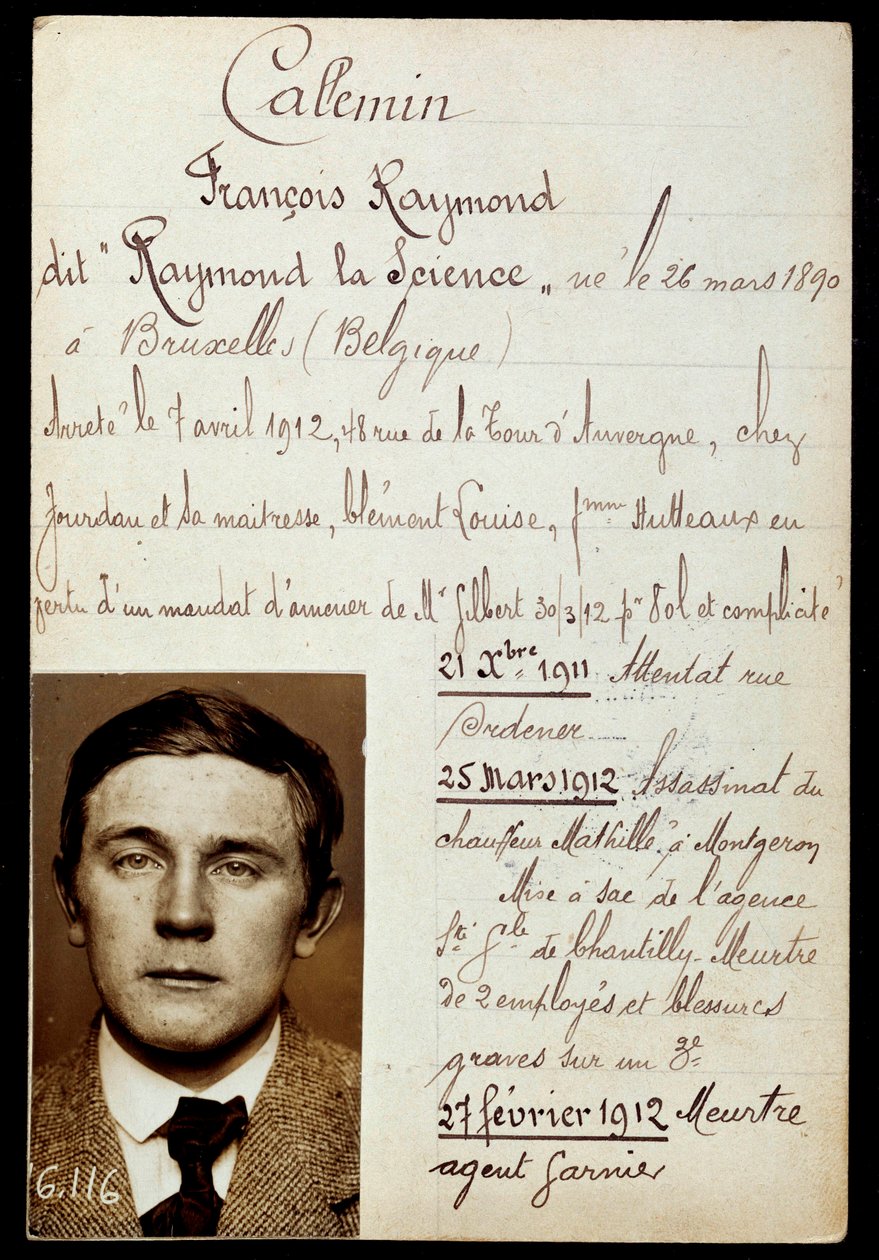 Callemin
François Raymond
dit " Raymond la Science „ né le 26 mars 1890
à Bruxelles (Belgique)
Arrêté le 7 avril 1912, 48 rue de la Tour d'Auvergne, chez
Jourdan et sa maitresse, Clément Louise, fmme Hutteaux en
vertu d'un mandat d'amener de Mr Gilbert 30/3/12 pr Vol et complicité
21 Xbre 1911 Attentat rue
Ordener
25 Mars 1912 Assassinat du
chauffeur Mathillé, à Montgeron
Mise à sac de l'agence
Sté Gle de Chantilly - Meurtre
de 2 employés et blessures
graves sur un 3e
27 février 1912 Meurtre
agent Garnier
6.116